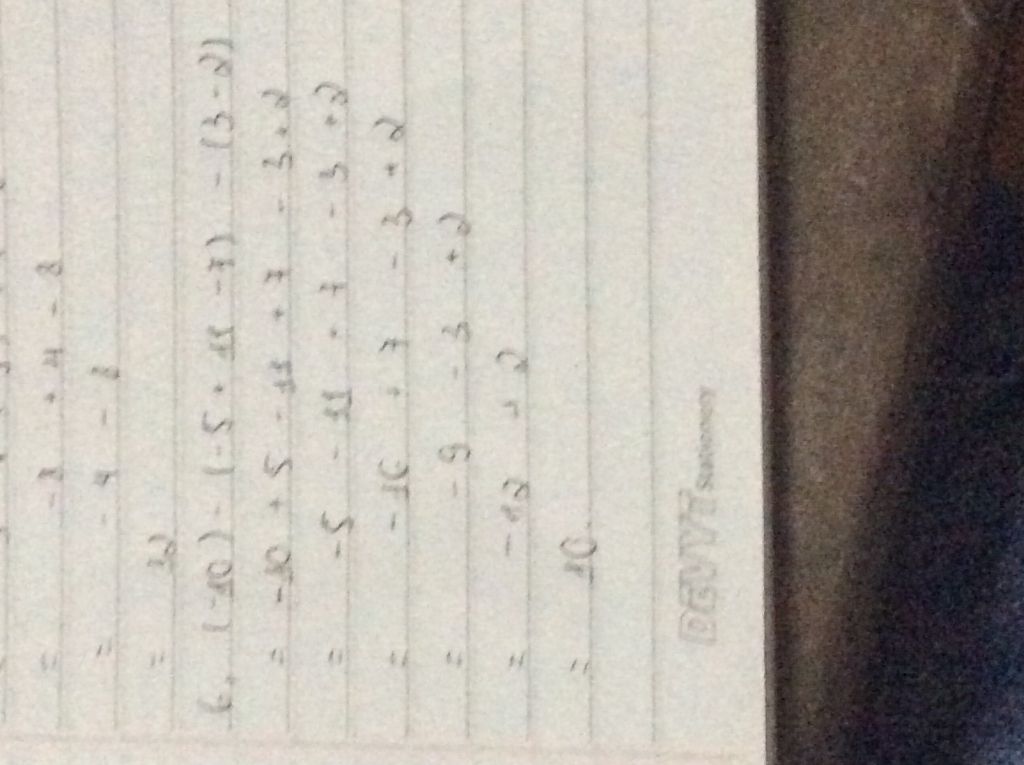 = -8 + 4 - 8
= -4 - 8
=
6, (-10) - (-5 + 11 - 7) - (3 - 2)
= -10 + 5 - 11 + 7 - 3 + 2
= -5 - 11 + 7 - 3 + 2
= -16 + 7 - 3 + 2
= -9 - 3 + 2
= -12 + 2
= 10.
Stationery